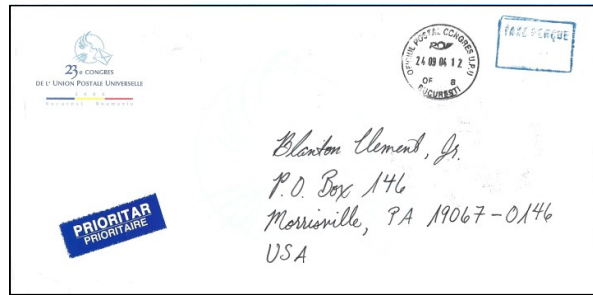 23e CONGRES
DE L' UNION POSTALE UNIVERSELLE
2004
Bucarest Roumanie
OFICIUL POSTAL CONGRES U.P.U
24 09 04 12
OF 8
BUCURESTI
TAXE PERÇUE
Blanton Clement, Jr.
P.O. Box 146
Morrisville, PA 19067-0146
USA
PRIORITAR
PRIORITAIRE